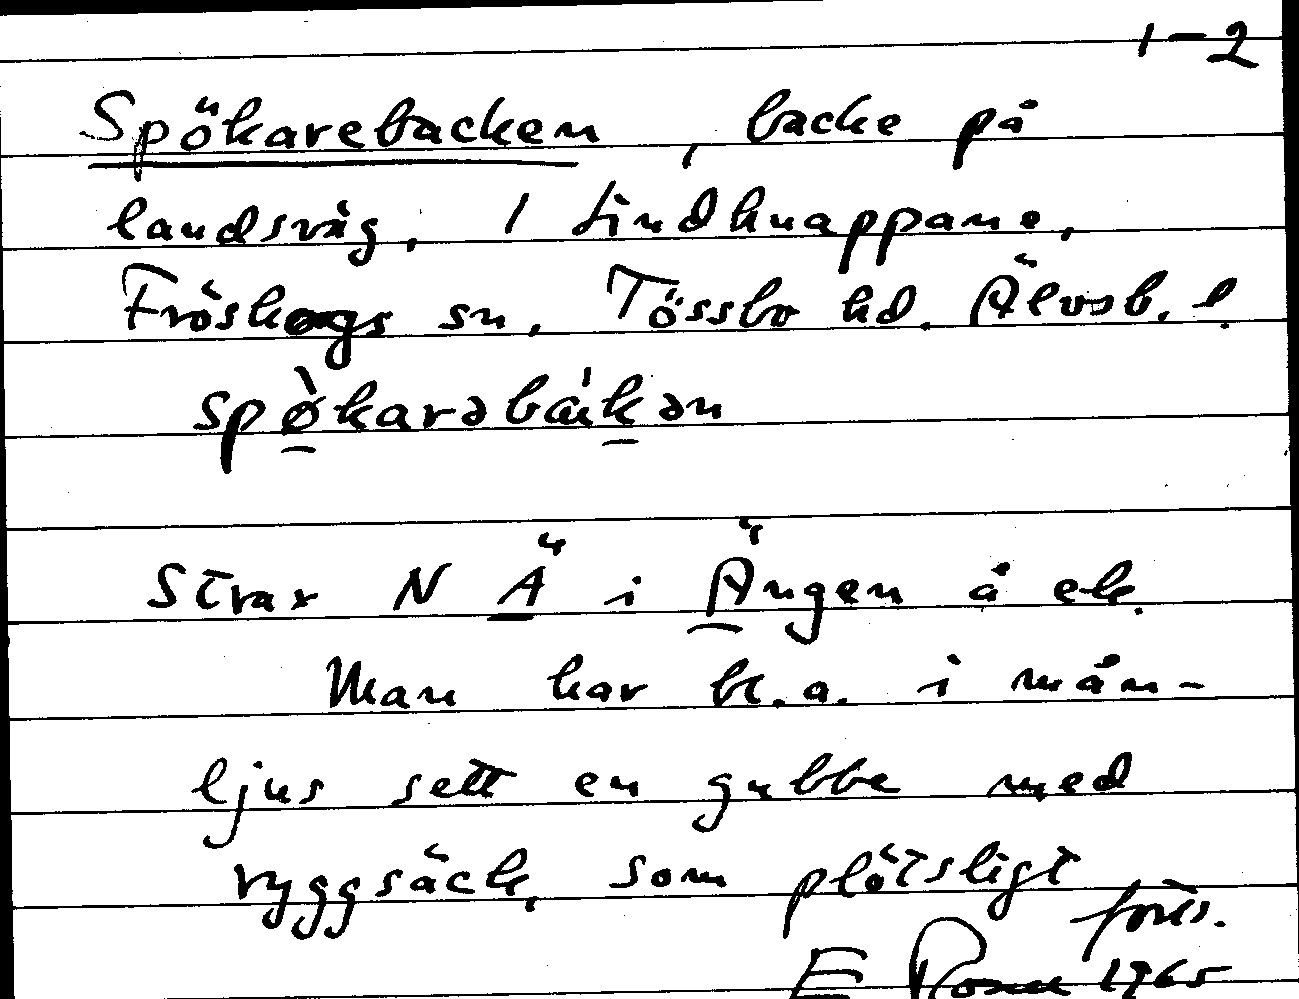 1-2
Spökarebacken, backe på
landsväg. 1 Lindknappane,
Fröskogs sn, Tössbo hd. Älvsb. l.
spø̀karəbaikən
Strax N Ä i Ängen å ek.
Man har bl.a. i mån-
ljus sett en gubbe med
ryggsäck, som plötsligt
forts.
E 1965